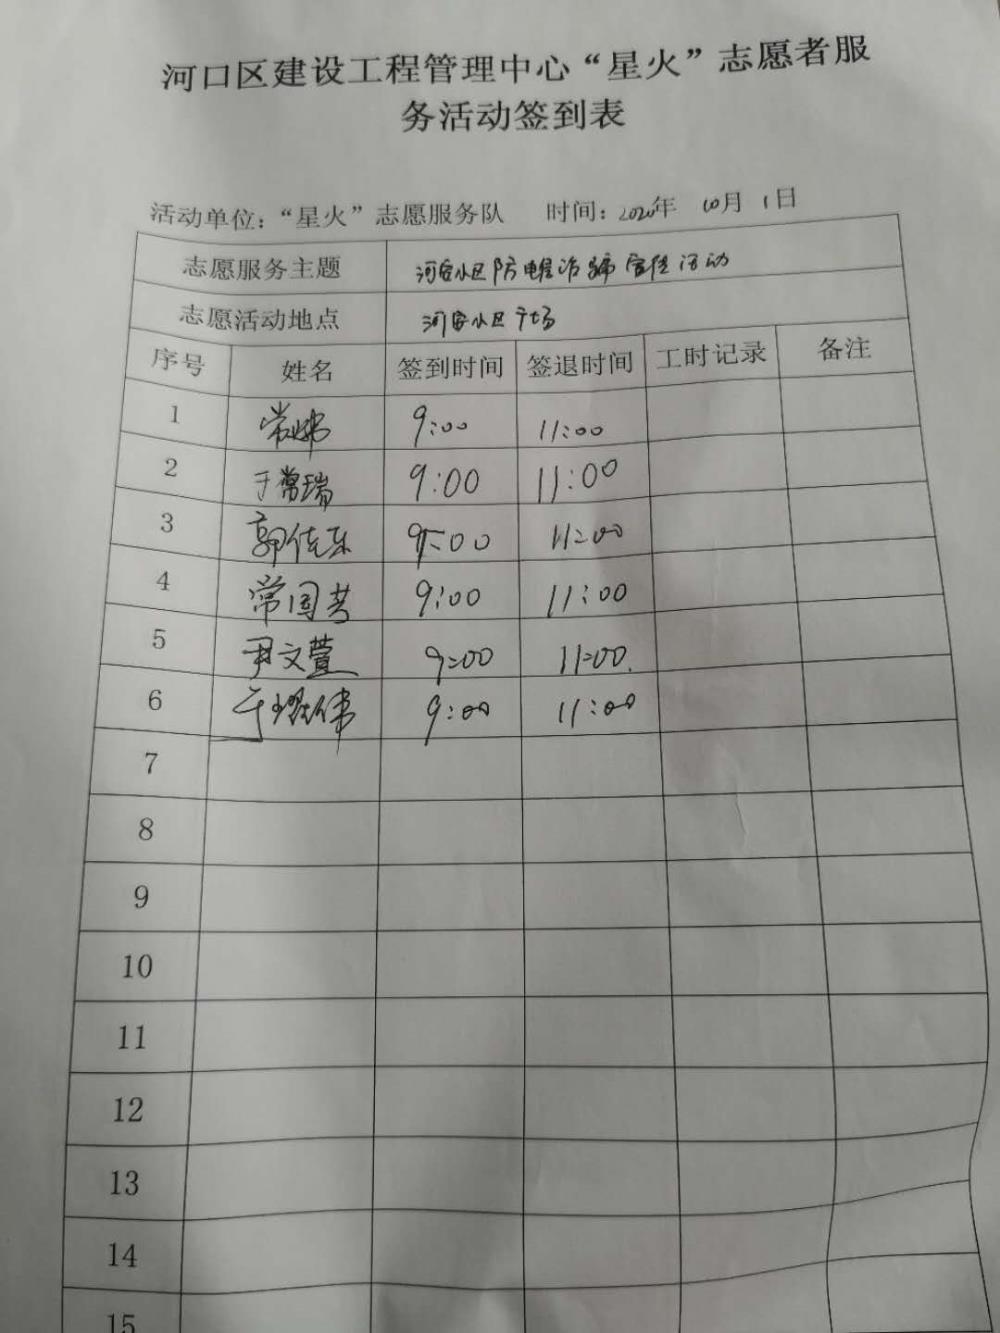 河口区建设工程管理中心“星火”志愿者服
务活动签到表
活动单位：“星火”志愿服务队 时间：2020年 10月 1日
志愿服务主题 河安小区防电信诈骗宣传活动
志愿活动地点 河安小区广场
序号 姓名 签到时间 签退时间 工时记录 备注
1 常娜 9:00 11:00
2 于常瑞 9:00 11:00
3 郭佳乐 9:00 11:00
4 常国芳 9:00 11:00
5 尹文萱 9:00 11:00.
6 于 伟 9:00 11:00
7
8
9
10
11
12
13
14
15